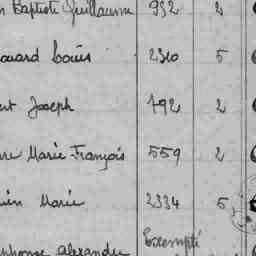 n Baptiste Guillaume 992 2
ouard Louis 2310 5
ert Joseph 492 2
rre Marie François 559 2
ien Marie 2334 5
phonse Alexandre Exempté